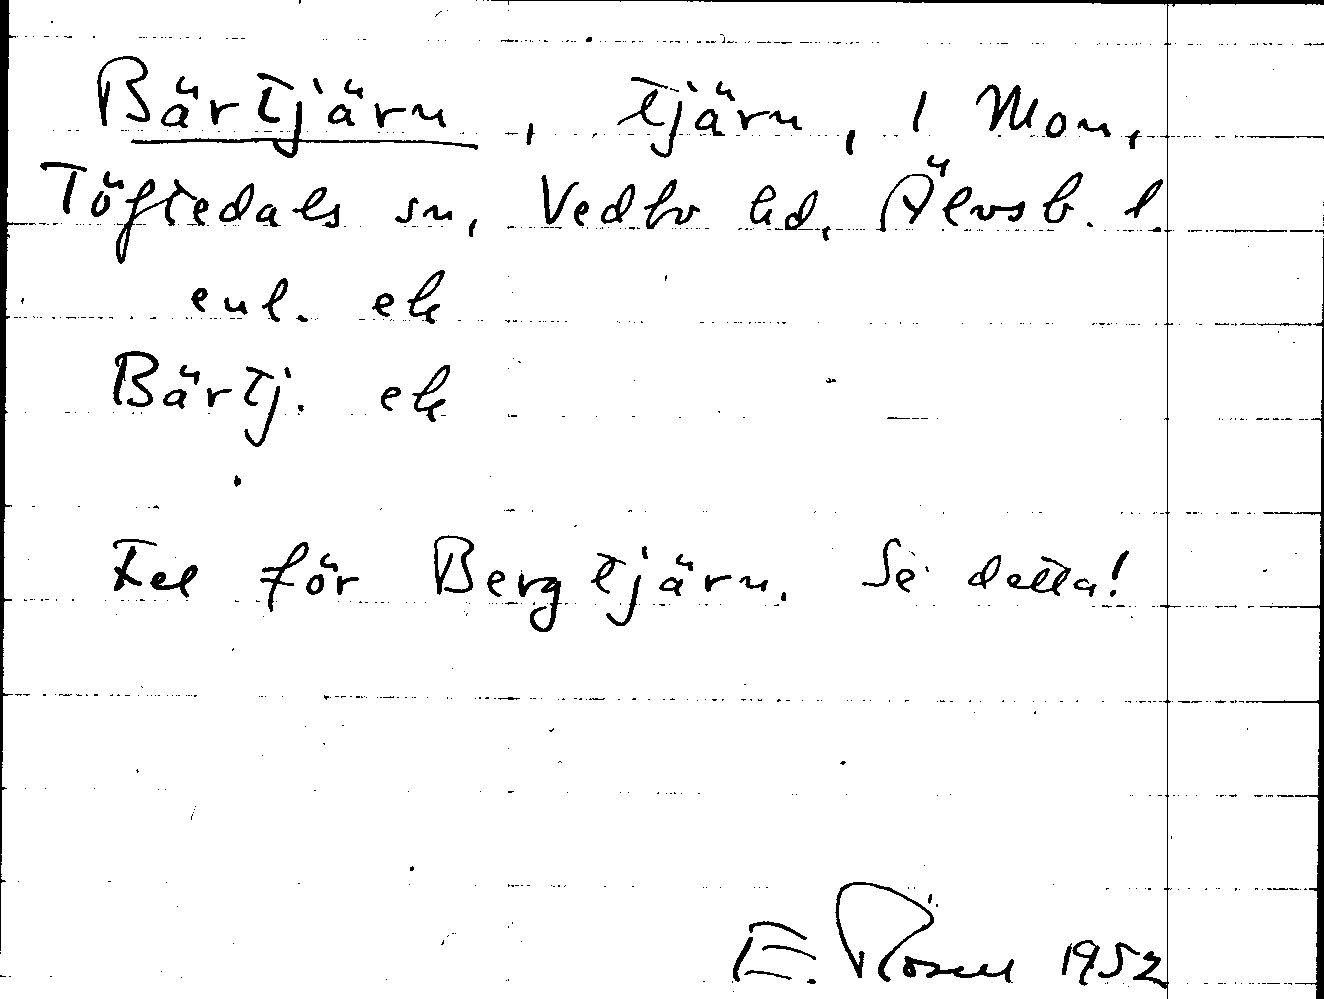 Bärtjärn, tjärn, 1 Mon,
Töftedals sn, Vedbo hd, Älvsb. l.
enl. ek
Bärtj. ek
Fel för Bergtjärn. Se detta!
E. Rosen 1952